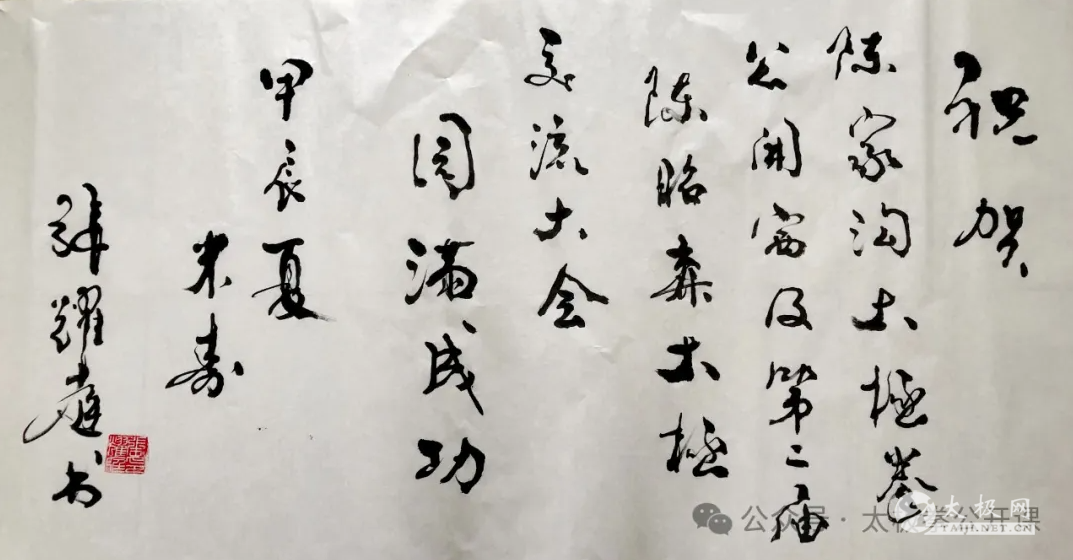 祝贺
陈家沟太極拳
公開赛及第二届
陈昭森太極
交流大会
圆满成功
甲辰夏
米寿
张耀庭书
公众号 · 太极拳公开课
太极网